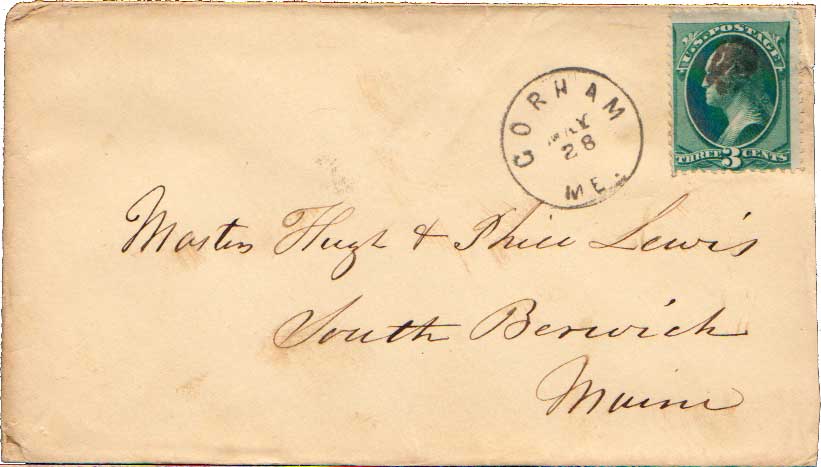 U.S. POSTAGE
THREE 3 CENTS
GORHAM
MAY
28
ME.
Masters Hugh & Phill Lewis
South Berwick
Maine